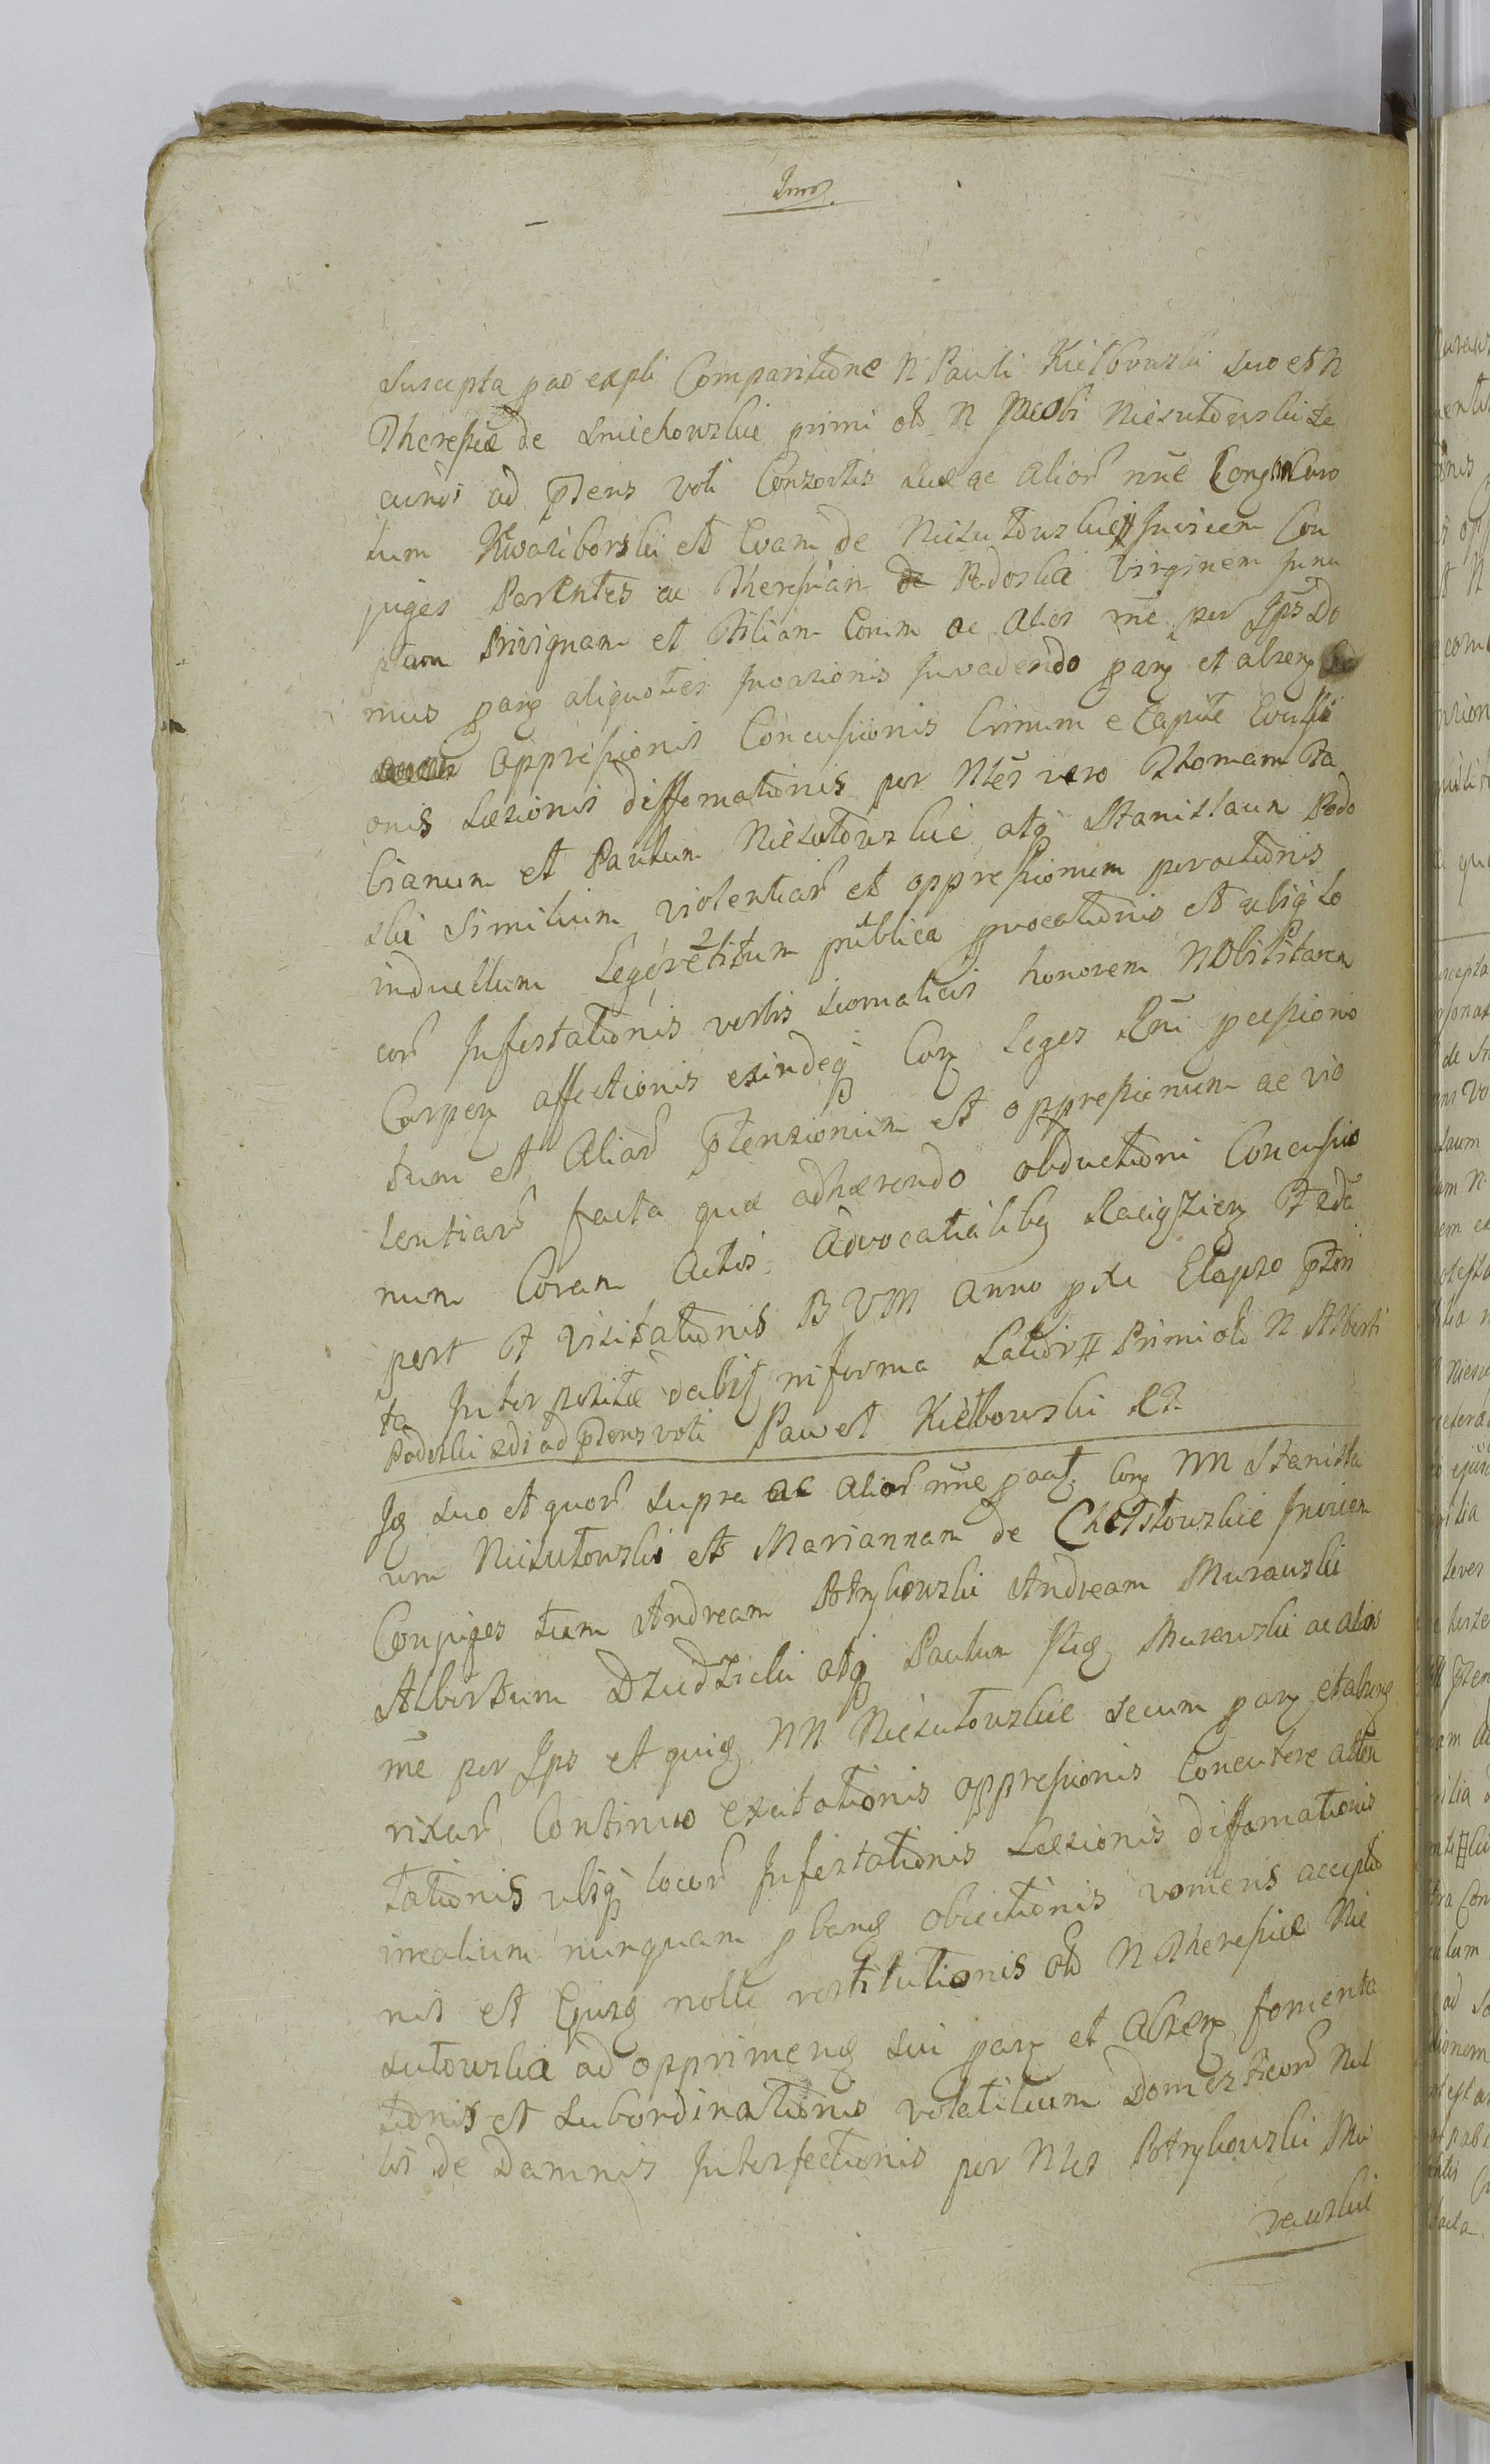 Suscepta pao expli Comparitione N Pauli Kiełbowski suo et N
Theresiæ de Smiechowskie primi olo N Jacobi Niesułowski se
cundi ad ptens voti Consortis suæ ac alior nne Con N Caro
lum Kwasiborski et Evam de Niesułowskie # Invicem Con
juges Parentes ac Theresiam de Podoska Virginem Innu
ptam Privignam et Filiam Eorum ac alios me per Ips Do
mus pang aliquoties Invasionis Invadendo pang et alreng
oppressionis Concussionis Crinium e Capite Evulsi
onis Læsionis diffamationis per Nles vero Thomam Fa
bianum et Paulum Niesułowskie atq Stanislaum Podo
ski Similium violentiar et oppressionum peractionis
in duellum Lege vetitum publica pvocationis et ubiq lo
cor Infestationis verbis scomaticis honorem Nobilitarem
Carpen affectionis exindeq Con Leges Rni pcessionis
tum et Aliar ptensionum et oppressionum ac vio
lentiar facta quæ adhærendo obductioni Concussio
num Coram Actis Advocatialibg Raciąszien F 2da
post F Visitationis B V M anno pxle Elapso ptori
ta Interpositæ dabit in forma Latiori # Primi olo N Alberti
Podoski 2di ad ptens voti Paweł Kiełbowski R
Jd suo et quor supra ac alior nne paat Con NN Stanisla
um Niesułowski et Mariannam de Chełstowskie Invicem
Conjuges tum Andream Potrykowski Andream Murawski
Albertum Dzudzicki atq Paulum Murawski ac alios
me per Ips et quid NN Niesułowskie secum pang et alreng
rixar Continuo excitationis oppressionis Concutere atten
tationis ubiq locor Infestationis Læsionis diffamationis
irrealium nunquam pband obiectionis vomeris accepto
nis et Ejusd nolle restitutionis olo N Theresiæ Nie
sułowska ad opprimend sui pang et alreng fomenta
tionis et subordinationis volatilium Domesticor Nul
lis de Damnis Interfectionis per Nles Potrykowski Mu
rawskie